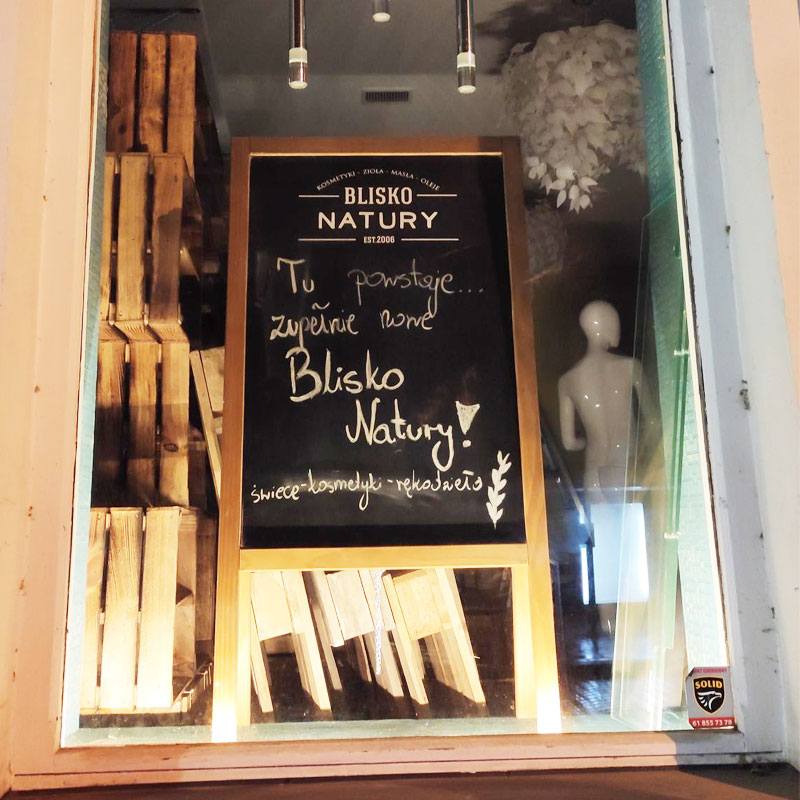 KOSMETYKI · ZIOŁA · MASŁA · OLEJE
BLISKO
NATURY
EST.2006
Tu powstaje...
zupełnie nowe
Blisko
Natury!
świece-kosmetyki-rękodzieło
SOLID
61 855 73 78